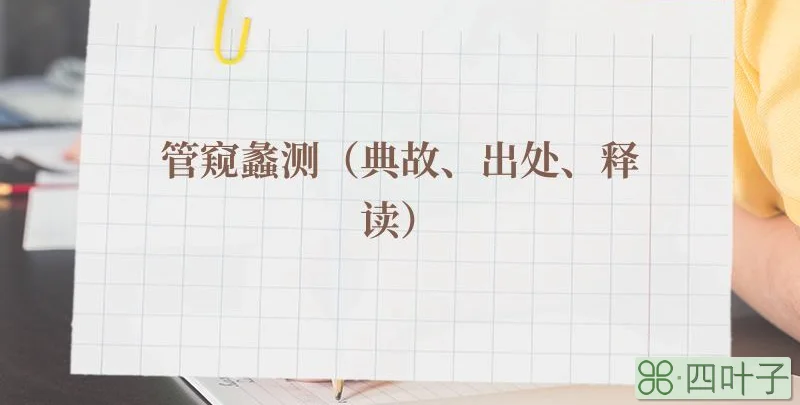 管窥蠡测（典故、出处、释
读）
四叶子